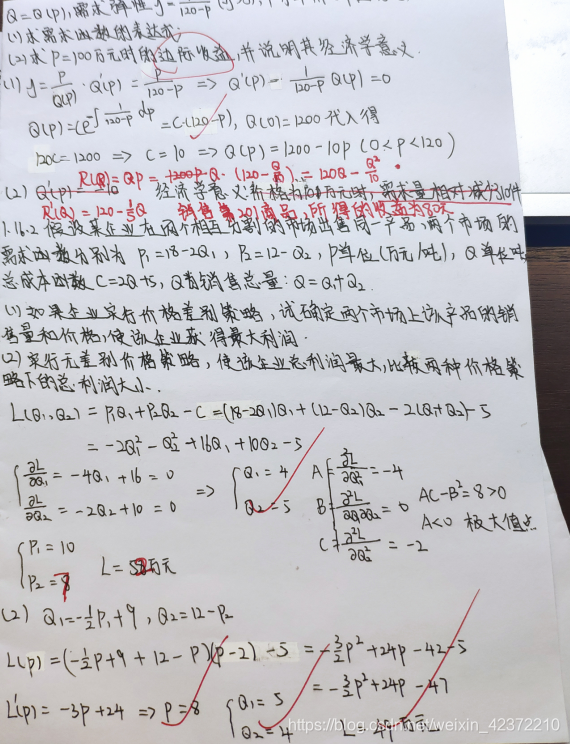 Q=Q(p),需求弹性 η=p/(120-p)
(1)求需求函数的表达式.
(2)求P=100万元时的边际收益,并说明其经济学意义.
(1) η=P/Q(P)·Q'(P)=P/(120-P) => Q'(P)-1/(120-P)Q(P)=0
Q(P)=Ce^{-∫1/(120-P)dp}=C·(120-P), Q(0)=1200代入得
120C=1200 => C=10 => Q(P)=1200-10P (0<P<120)
R(Q)=QP=Q·(120-Q/10)=120Q-Q²/10
(2) 经济学意义:价格为100万元时,需求量相对减少10件
R'(Q)=120-1/5Q 销售第201商品,所得的收益为80万
1.16.2 假设某企业在两个相互分割的市场出售同一产品,两个市场的
需求函数分别为 P₁=18-2Q₁, P₂=12-Q₂, P单位(万元/吨), Q单位吨
总成本函数C=2Q+5, Q为销售总量: Q=Q₁+Q₂
(1)如果企业实行价格差别策略,试确定两个市场上该产品的销
售量和价格,使该企业获得最大利润.
(2)实行无差别价格策略,使该企业总利润最大,比较两种价格策
略下的总利润大小.
L(Q₁,Q₂)=P₁Q₁+P₂Q₂-C=(18-2Q₁)Q₁+(12-Q₂)Q₂-2(Q₁+Q₂)-5
=-2Q₁²-Q₂²+16Q₁+10Q₂-5
{∂L/∂Q₁=-4Q₁+16=0
∂L/∂Q₂=-2Q₂+10=0
=> {Q₁=4
Q₂=5
A=∂²L/∂Q₁²=-4
B=∂²L/∂Q₁∂Q₂=0
C=∂²L/∂Q₂²=-2
AC-B²=8>0
A<0 极大值点
{P₁=10
P₂=7
L=52万元
(2) Q₁=-1/2P₁+9, Q₂=12-P₂
L(p)=(-1/2P+9+12-P)(P-2)-5=-3/2P²+24P-42-5
=-3/2P²+24P-47
L'(p)=-3P+24 => P=8 {Q₁=5
Q₂=4
https://blog.csdn.net/weixin_42372210